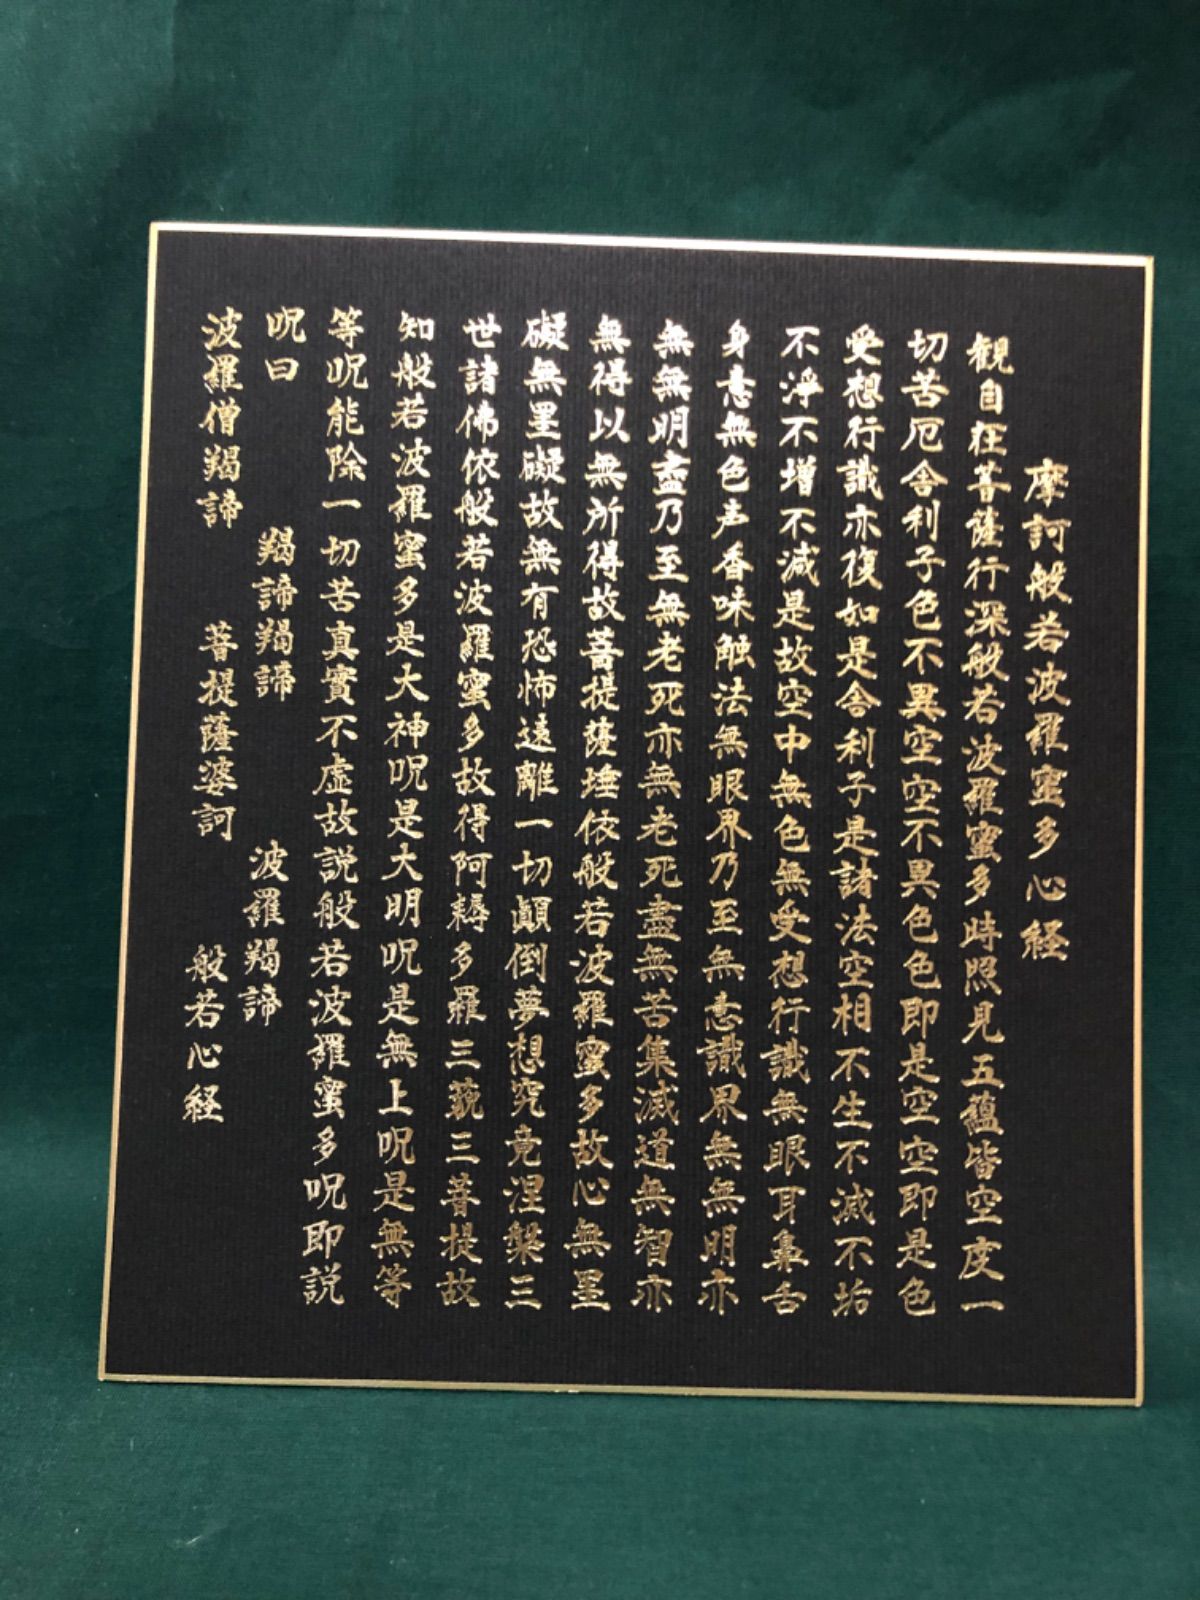 摩訶般若波羅蜜多心経
観自在菩薩行深般若波羅蜜多時照見五蘊皆空度一
切苦厄舎利子色不異空空不異色色即是空空即是色
受想行識亦復如是舎利子是諸法空相不生不滅不垢
不淨不増不減是故空中無色無受想行識無眼耳鼻舌
身意無色声香味触法無眼界乃至無意識界無無明亦
無無明盡乃至無老死亦無老死盡無苦集滅道無智亦
無得以無所得故菩提薩埵依般若波羅蜜多故心無罣
礙無罣礙故無有恐怖遠離一切顛倒夢想究竟涅槃三
世諸佛依般若波羅蜜多故得阿耨多羅三藐三菩提故
知般若波羅蜜多是大神呪是大明呪是無上呪是無等
等呪能除一切苦真實不虚故説般若波羅蜜多呪即説
呪曰　羯諦羯諦　波羅羯諦
波羅僧羯諦　菩提薩婆訶　般若心経